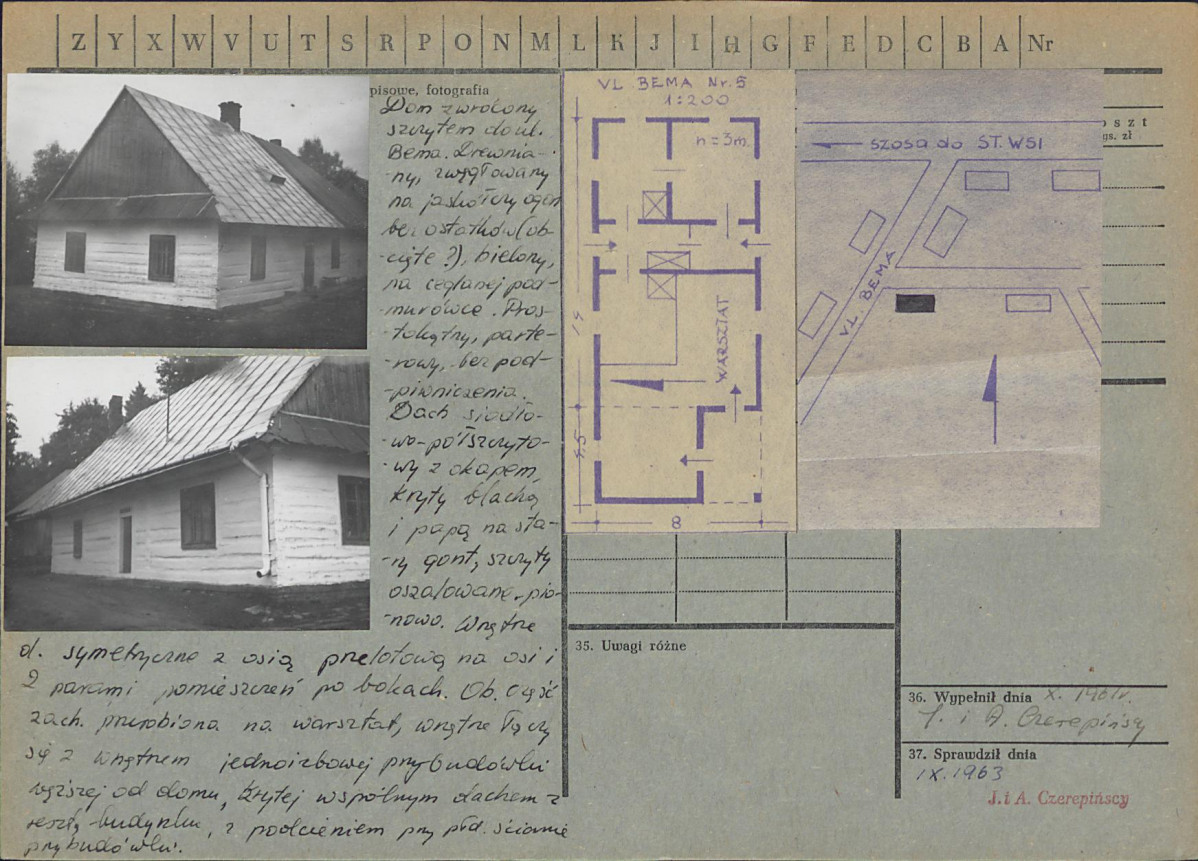 Z Y X W V U T S R P O N M L K J I H G F E D C B A Nr
pisowe, fotografia
Dom zwrócony
szczytem do ul.
Bema. Drewnia-
-ny, zwęgłowany
na jaskółczy ogon
bez ostatków (ob-
-cięte?), bielony,
na ceglanej pod-
-murówce. Pros-
-tokątny, parte-
-rowy, bez pod-
-piwniczenia.
Dach siodło-
-wo-półszczyto-
-wy z okapem,
kryty blachą
i papą na sta-
-ry gont, szczyty
oszalowane pio-
-nowo. Wnętrze
d. symetryczne z osią przelotową na osi i
2 parami pomieszczeń po bokach. Ob. część
zach. przerobiona na warsztat, wnętrze łączy
się z wnętrzem jednoizbowej przybudówki
węższej od domu, krytej wspólnym dachem z
resztą budynku, z podcieniem przy płd. ścianie
przybudówki.
VL BEMA Nr. 5
1:200
h = 3m
WARSZTAT
14
4,5
8
SZOSA do ST. WSI
VL. BEMA
oszt
us. zł
35. Uwagi różne
36. Wypełnił dnia X. 1961r.
J. i A. Czerepińscy
37. Sprawdził dnia
IX.1963
J. i A. Czerepińscy